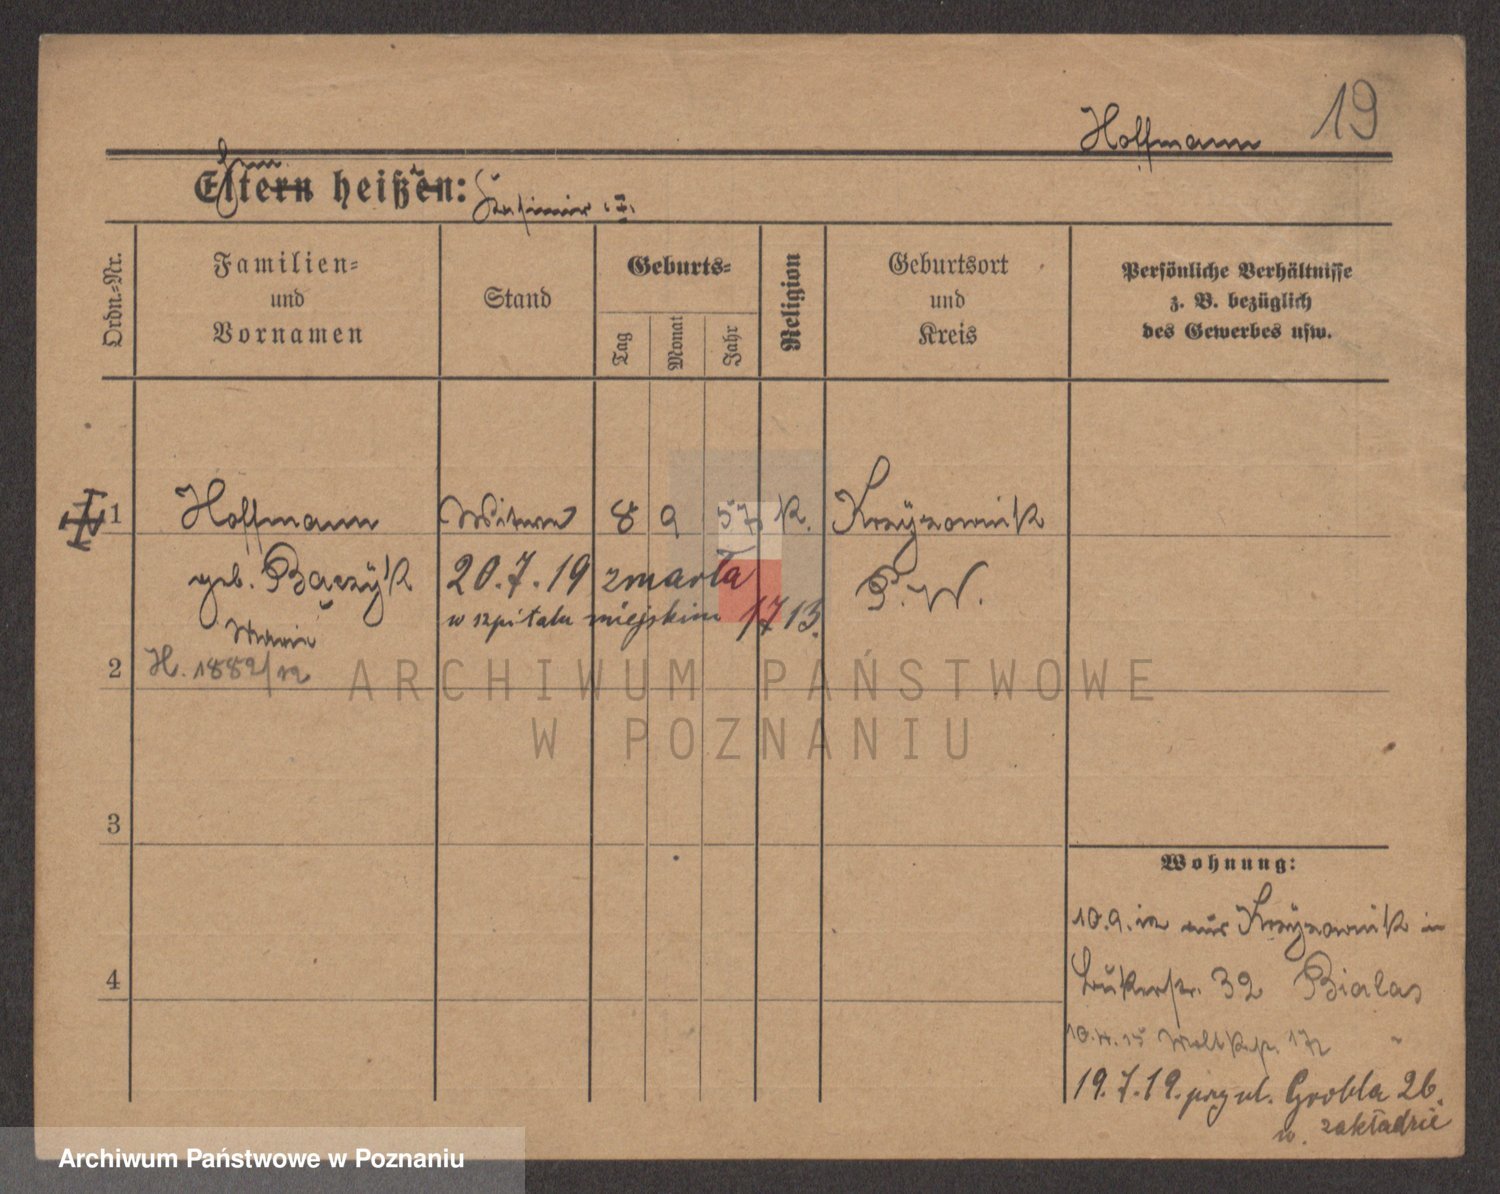 Hoffmann 19
Eltern heißen:
Ordn.=Nr.
Familien=
und
Vornamen
Stand
Geburts=
Tag
Monat
Jahr
Religion
Geburtsort
und
Kreis
Persönliche Verhältnisse
z. B. bezüglich
des Gewerbes usw.
1 Hoffmann Witwe 8 9 57 K. Krzyżownik
geb. Bączyk 20.7.19 zmarła P. W.
w szpitalu miejskim 1713.
Maria
2 H. 1882/12
ARCHIWUM PAŃSTWOWE
W POZNANIU
3
Wohnung:
10.9.12 aus Krzyżownik in
4 32 Bialas
19.7.19. przy ul. Grobla 26.
w. zakładzie
Archiwum Państwowe w Poznaniu